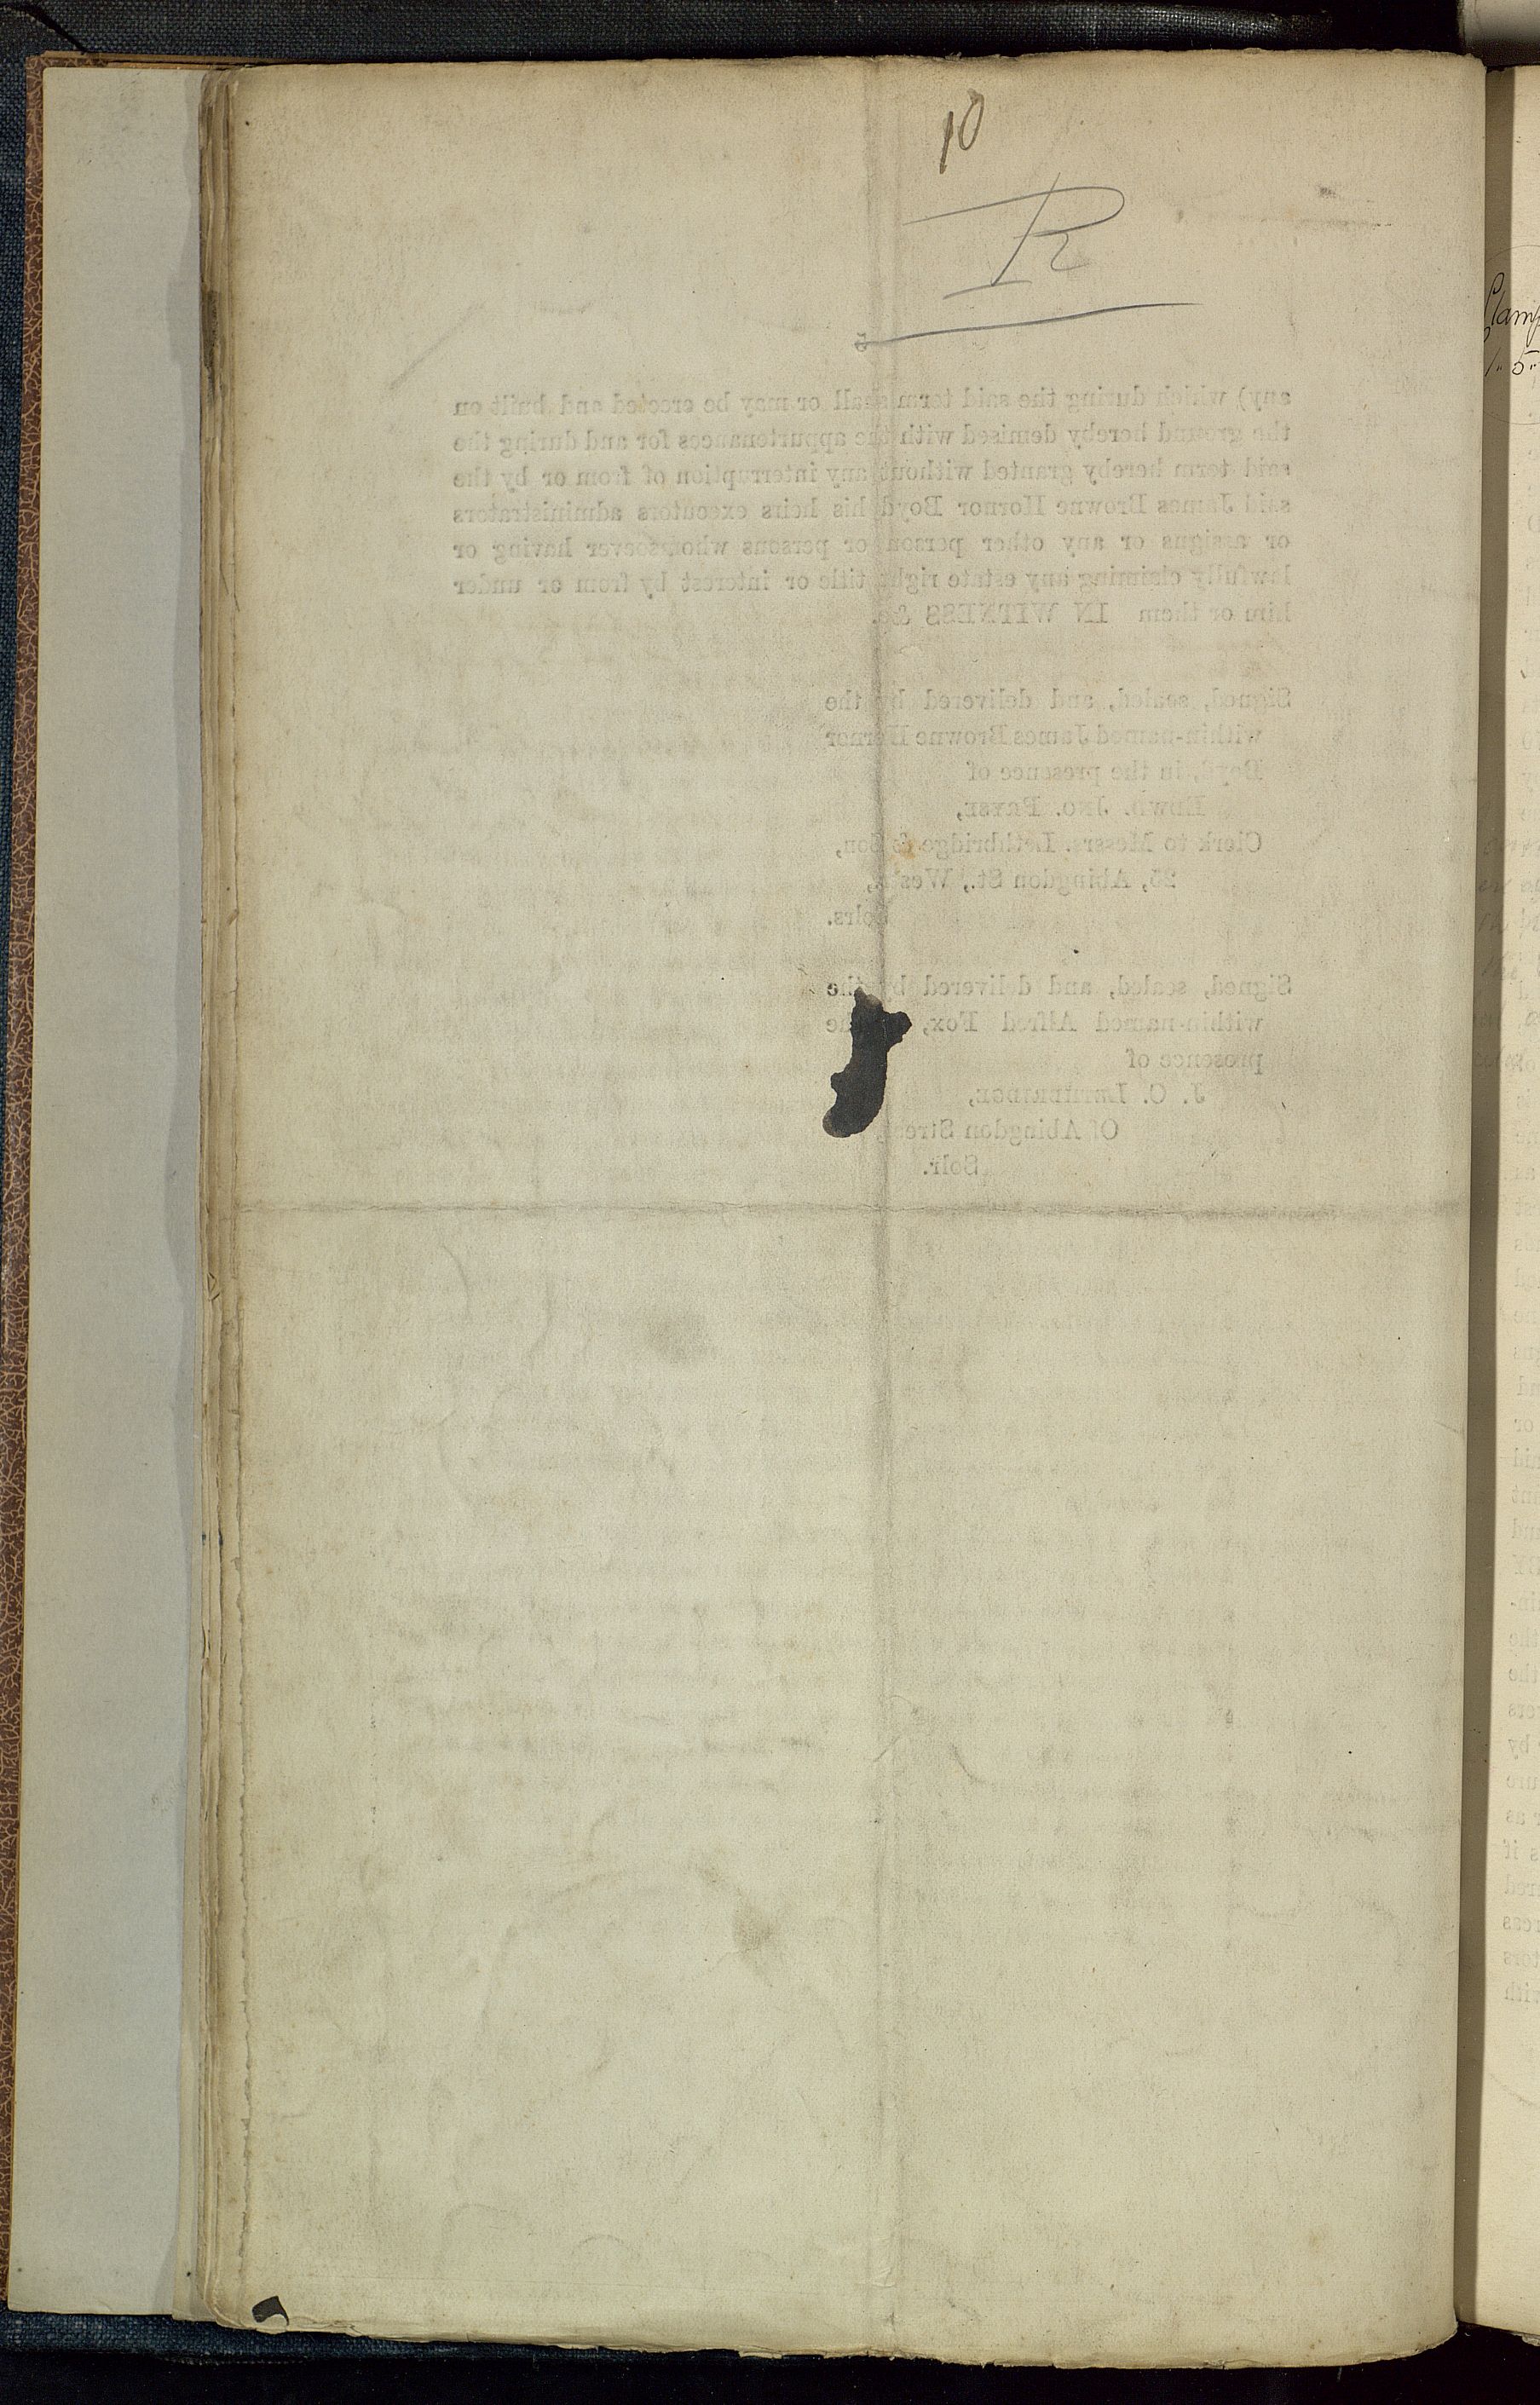 10
R
5
any) which during the said term shall or may be erected and built on
the ground hereby demised with the appurtenances for and during the
said term hereby granted without any interruption of from or by the
said James Browne Hornor Boyd his heirs executors administrators
or assigns or any other person or persons whomsoever having or
lawfully claiming any estate right title or interest by from or under
him or them IN WITNESS &c.
Signed, sealed, and delivered by the
within-named James Browne Hornor
Boyd, in the presence of
EDWD. JNO.
Clerk to Messrs. Lethbridge & Son,
25, Abingdon St., Westr.,
Solrs.
Signed, sealed, and delivered by the
within-named Alfred Fox, the
presence of
J. C. LETHBRIDGE,
Of Abingdon Street,
Solr.